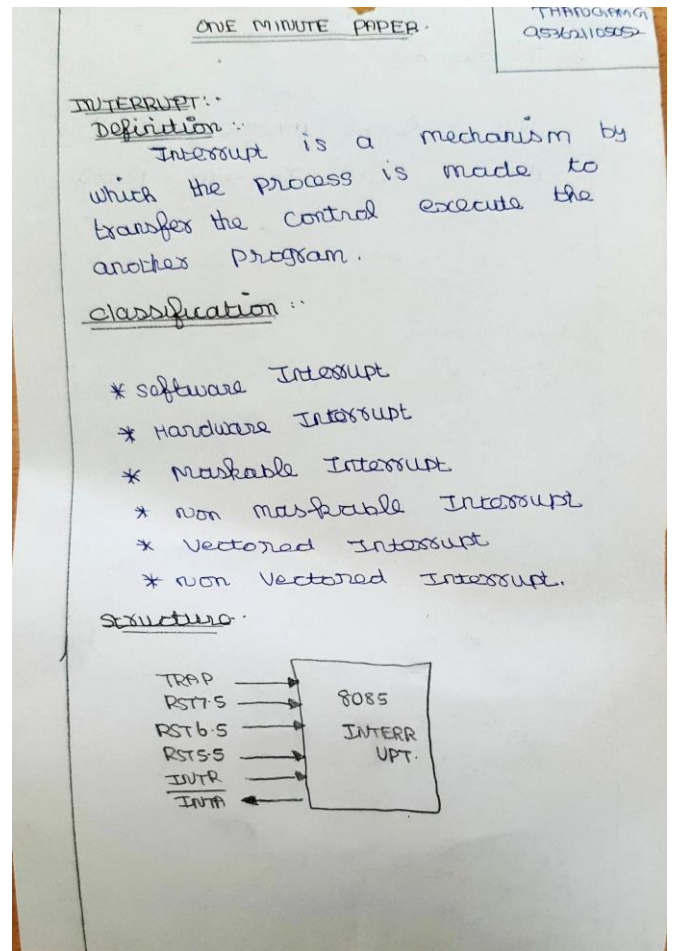 ONE MINUTE PAPER.
953621105052
INTERRUPT:-
Definition:-
Interrupt is a mechanism by
which the process is made to
transfer the control execute the
another program.
classification:-
* software Interrupt
* Hardware Interrupt
* Maskable Interrupt
* non maskable Interrupt
* Vectored Interrupt
* non Vectored Interrupt.
structure.
TRAP
RST7.5
RST6.5
RST5.5
INTR
INTA
8085
INTERR
UPT.